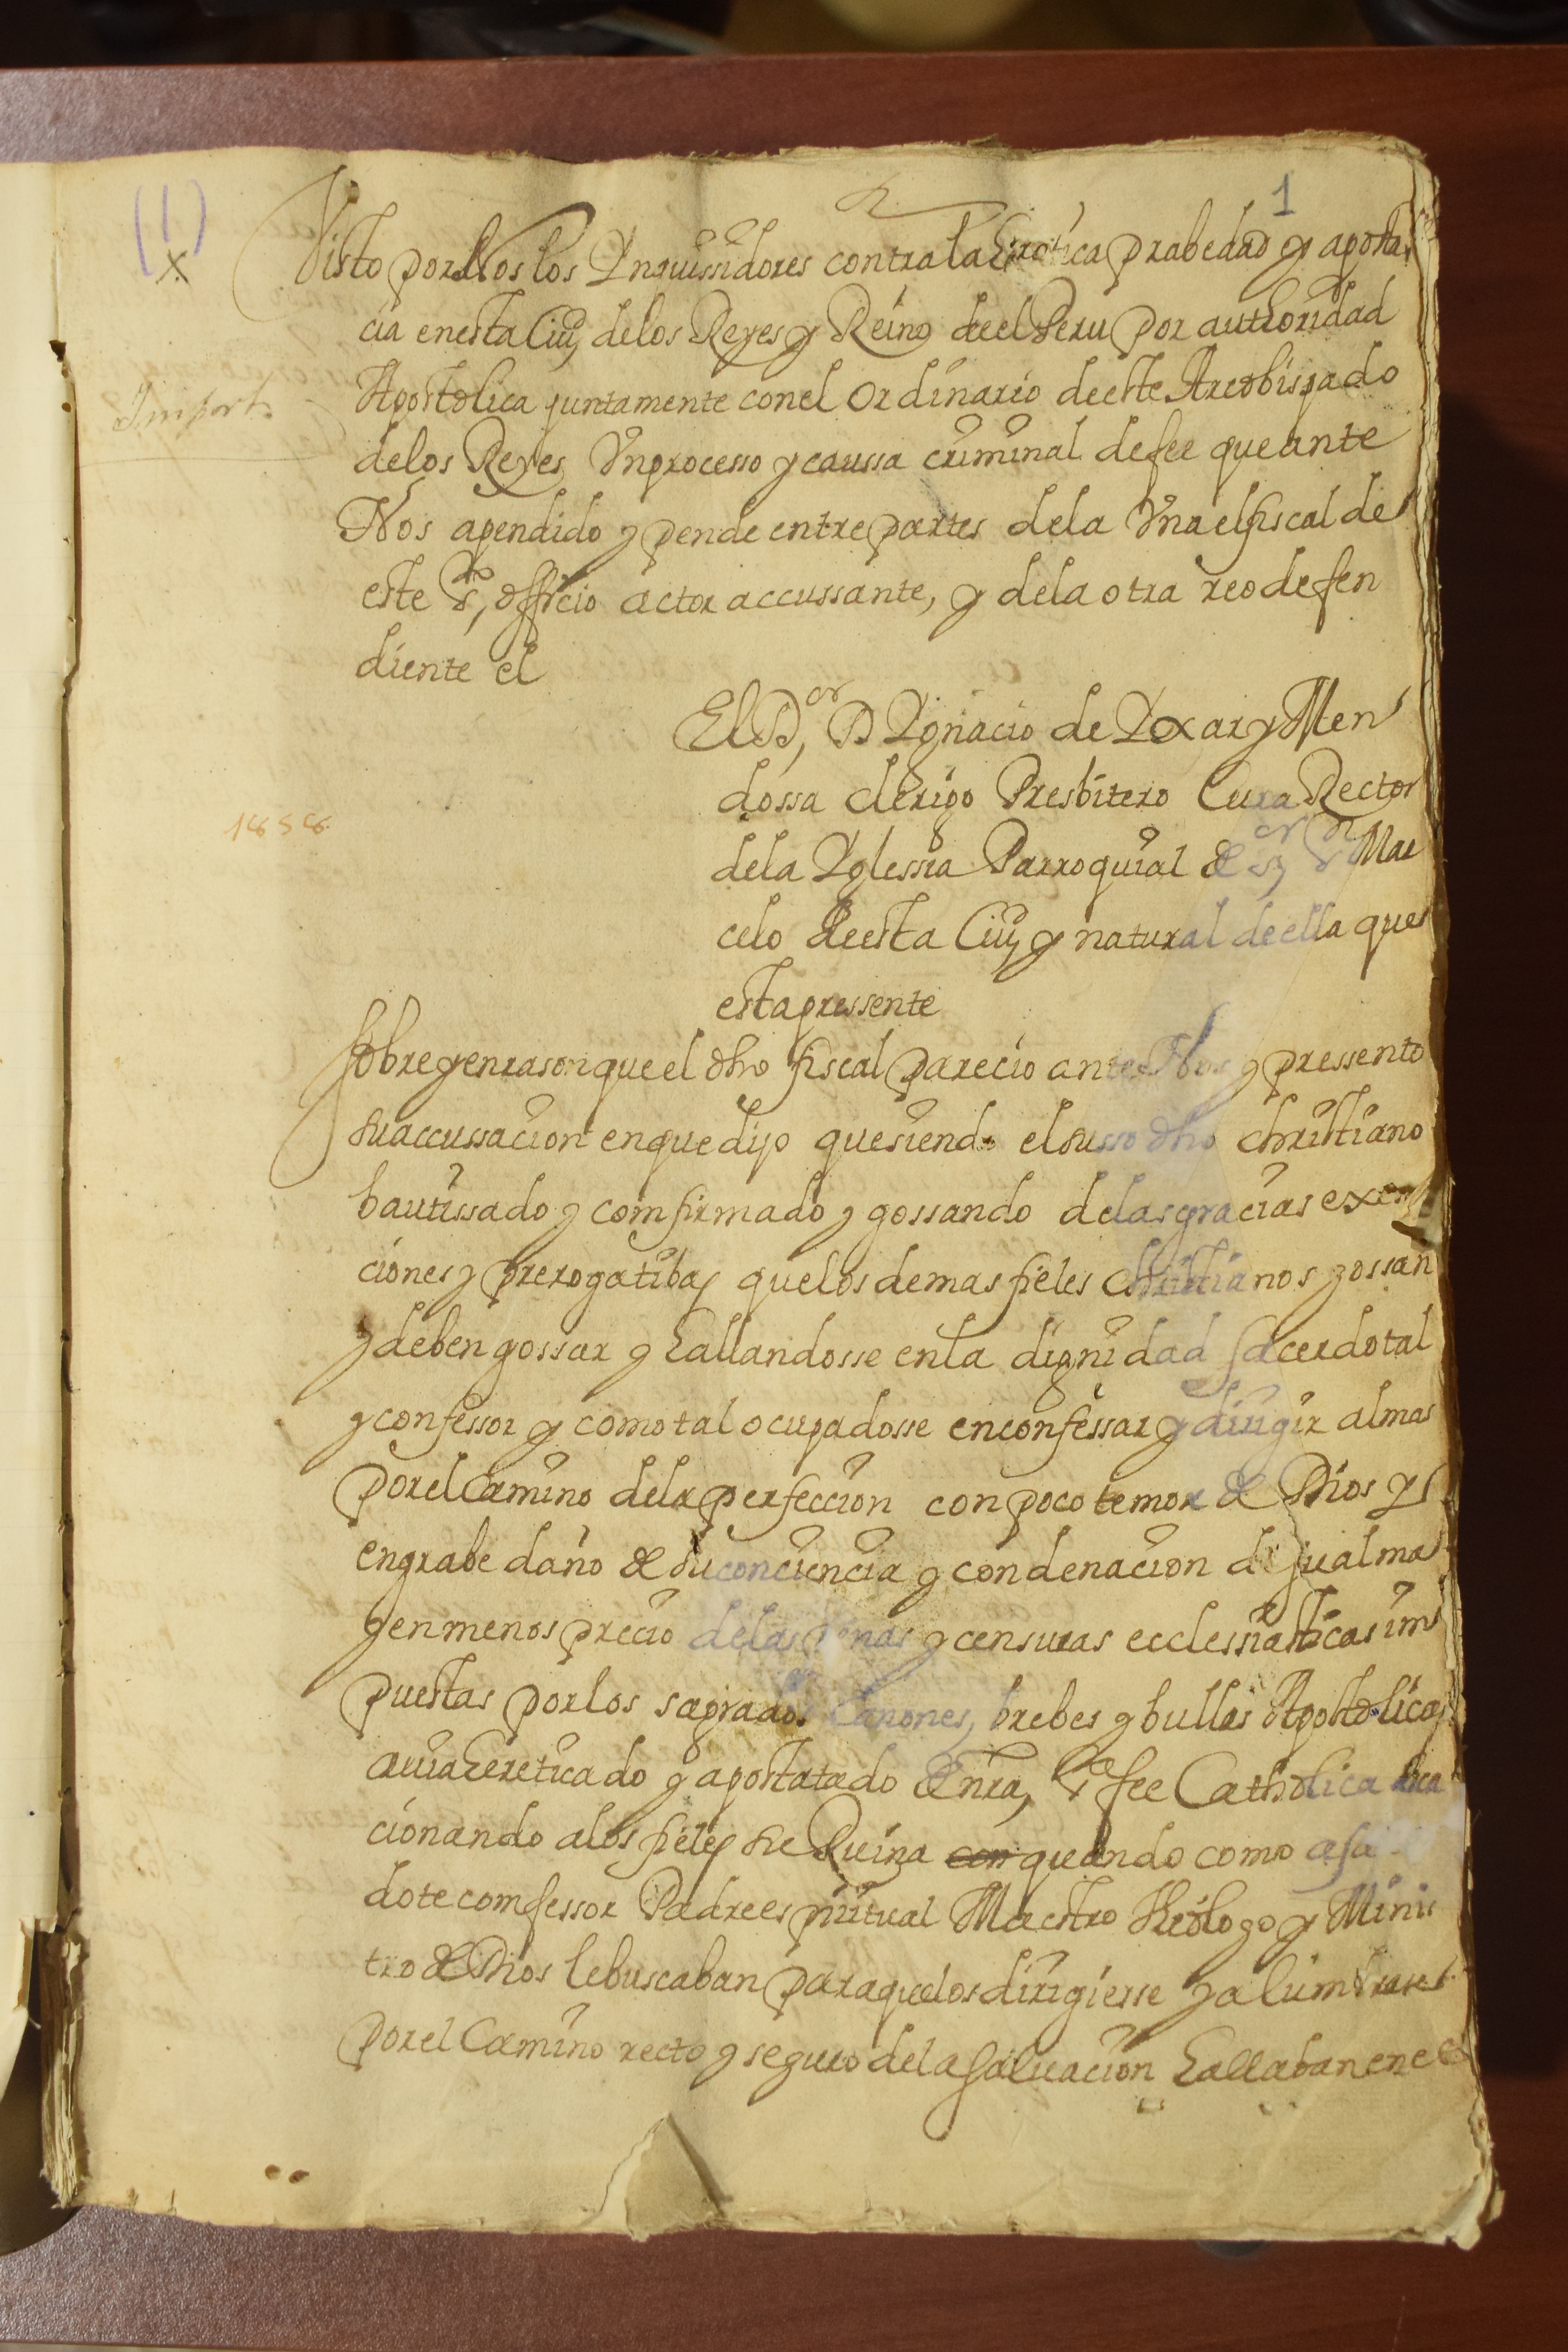 (1)
1
X
Visto por Nos los Ynquissidores contra la Eretica prabedad y aposta
cia en esta Ciud de los Reyes y Reino de el Peru por authoridad
Apostolica juntamente con el Ordinario de este Arcobispado
de los Reyes Vn processo y caussa criminal de fee que ante
Nos a pendido y pende entre partes de la Vna el fiscal de
este Sto officio actor accussante, y de la otra reo defen
diente el
El Dor D Ygnacio de Yxar y Men
dossa clerigo Presbitero Cura Rector
de la Yglessia Parroquial de Sor Sn Mar
celo de esta Ciud y natural de ella que
esta pressente
Sobre y en rason que el dho fiscal parecio ante Nos y pressento
su accussacion en que dijo que siendo el susso dho christiano
bautissado y comfirmado y gossando de las gracias exem
ciones y prerogatibas que los demas fieles christianos gossan
y deben gossar y hallandosse en la dignidad sacerdotal
y confessor y como tal ocupadosse en confessar y dirigir almas
por el Camino de la perfeccion con poco temor de Dios y
en grabe daño de su conciencia y condenacion de su alma
y en menos precio de las penas y censuras ecclessiasticas im
puestas por los sagrados Canones, brebes y bullas Apostolicas
auia hereticado y apostatado de nra, Sta fee Catholica
cionando a los fieles su Ruina con quando como a sa
dote comfessor Padre espiritual Maestro theologo y Minis
tro de Dios le buscaban para que los dirigiesse y alumbrasse
por el Camino recto y seguro de la saluacion hallaban en el
Import.
1858